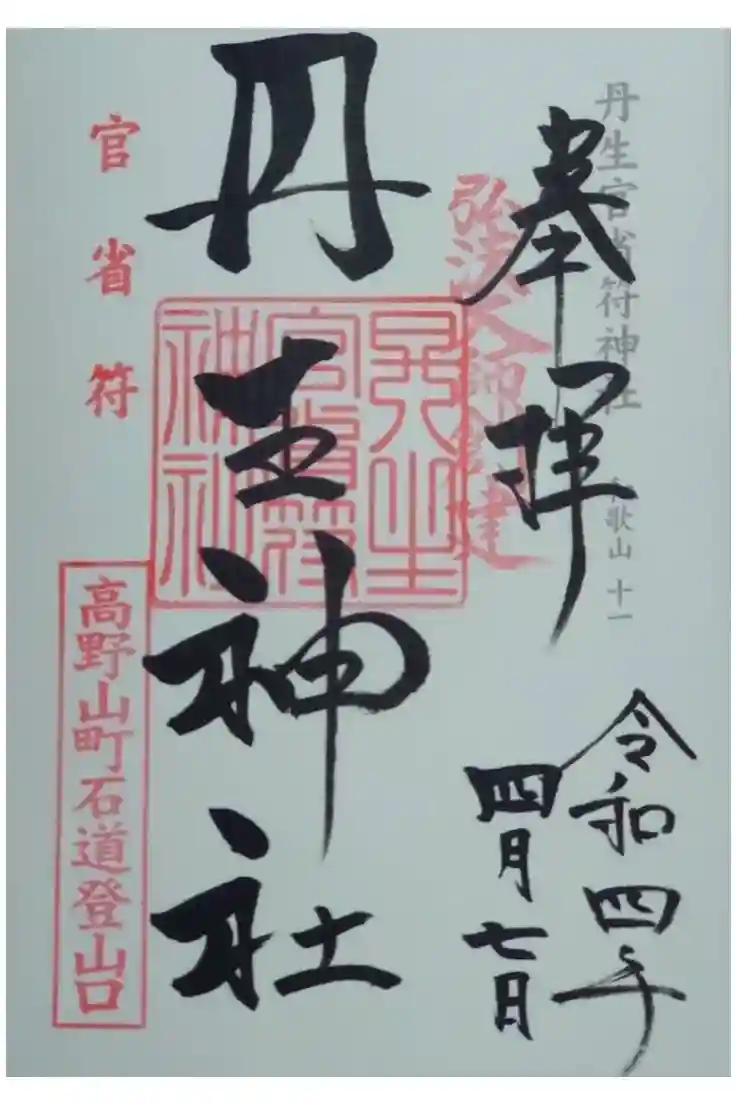 丹生官省符神社 和歌山 十一
奉拝
弘法大師創建
令和四年
四月七日
丹生神社
丹生官省符神社
官省符
高野山町石道登山口